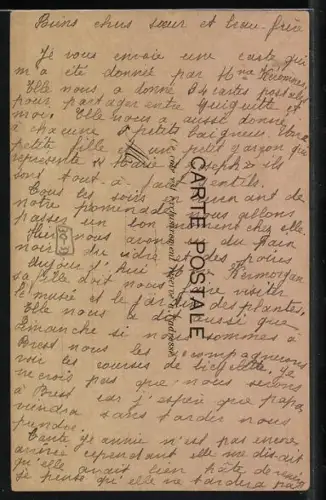 Biens chers sœur et beau-frère
Je vous envoie une carte qui
m'a été donnée par Mme Kermorgan
Elle nous a donné 34 cartes postales
pour partager entre Guiguitte et
moi. Elle nous a aussi donné
à chacune petits baigneurs
petite fille et un petit garçon qui
représente Marie Joseph ils
sont tout-à-fait gentils.
Tous les soirs en revenant de
notre promenade nous allons
passer un bon moment chez elle.
Hier nous avons du pain
noir du cidre et des poires
Aujourd'hui Kermorgan
sa fille doit nous faire visiter
le musée et le jardin des plantes.
Elle nous a dit aussi que
dimanche si nous sommes à
Brest nous les accompagnerons
voir les courses de bicyclette. Je
ne crois pas que nous serons
à Brest car j'espère que papa
viendra sans tarder nous
prendre.
Tante Jeannie n'est pas encore
arrivée cependant elle me disait
qu'elle avait bien hâte de
je pense qu'elle ne tardera pas
CARTE POSTALE
Ce côté est exclusivement réservé à l'adresse